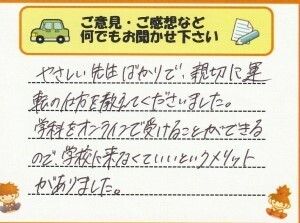 ご意見・ご感想など
何でもお聞かせ下さい
やさしい先生ばかりで、親切に運
転の仕方を教えてくださいました。
学科をオンラインで受けることができる
ので、学校に来なくていいというメリット
がありました。